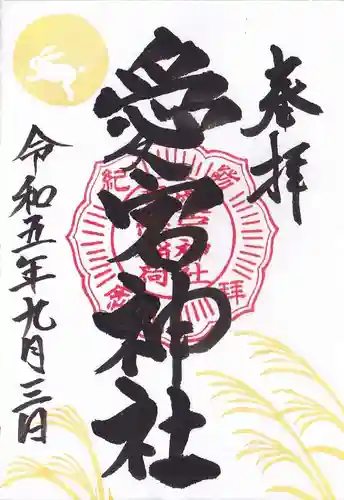 奉拝
愛宕神社
令和五年九月三日
参拝紀念